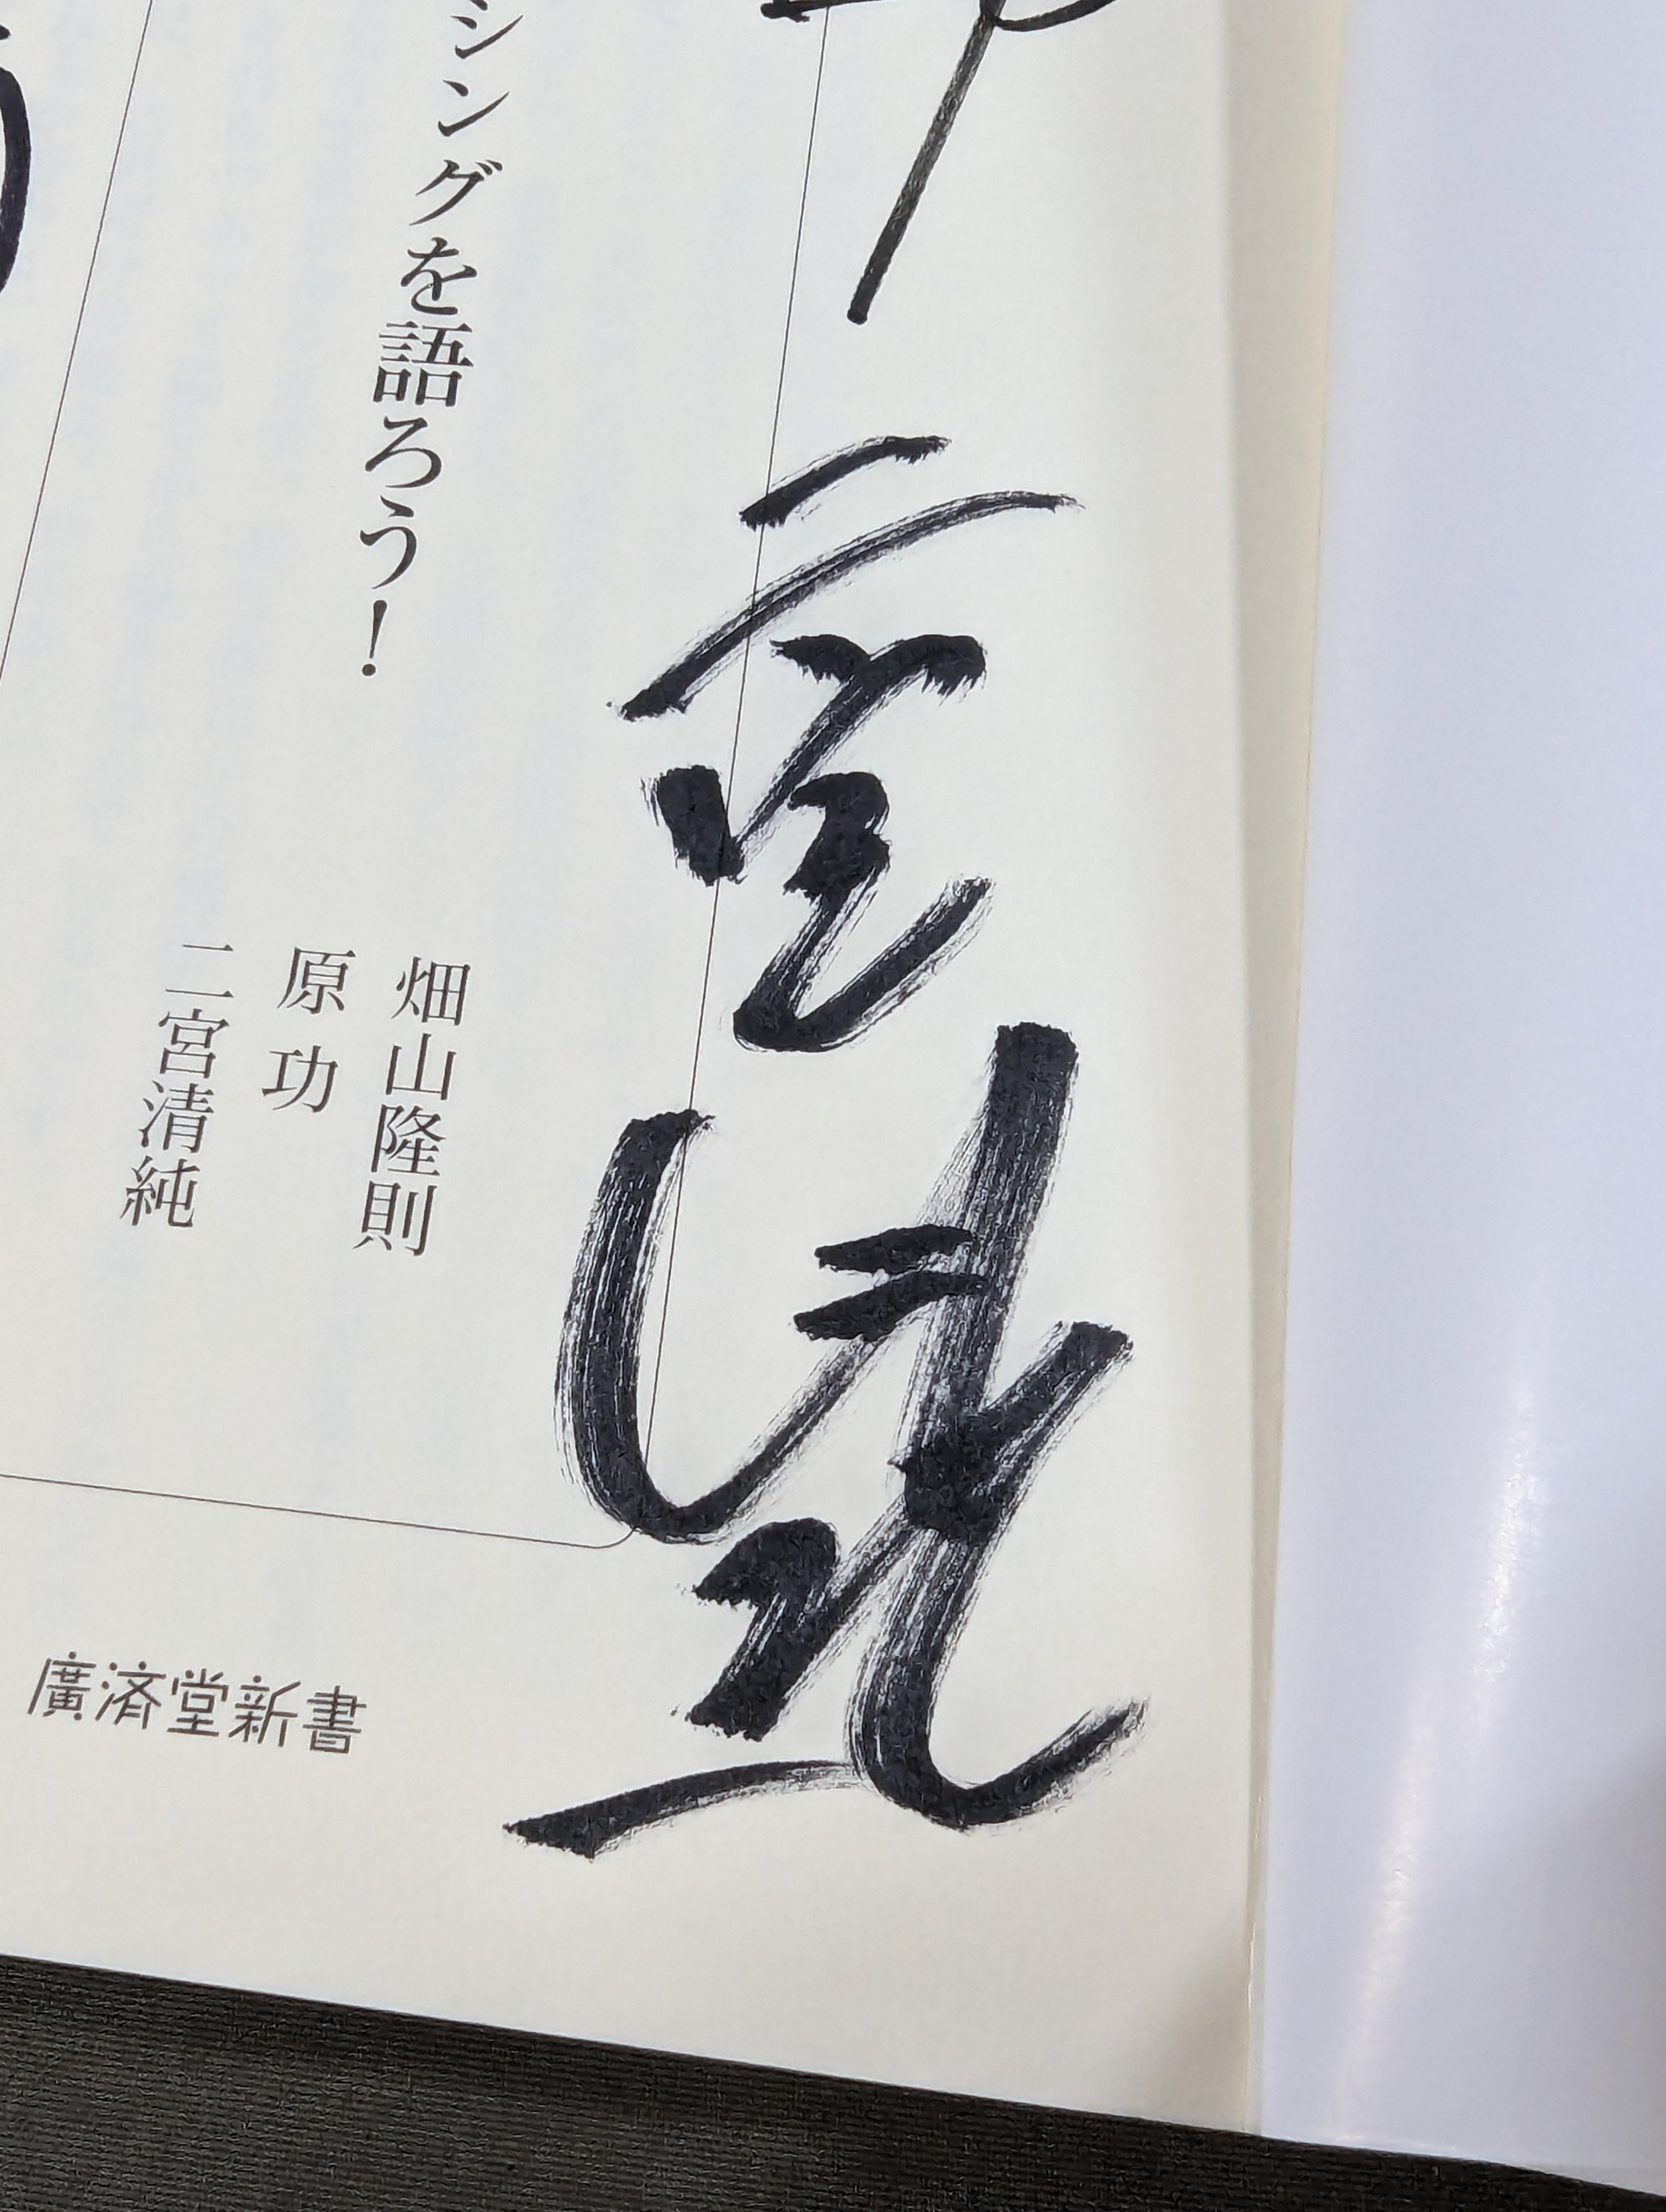 二宮清純
シングを語ろう!
畑山隆則
原 功
二宮清純
廣済堂新書